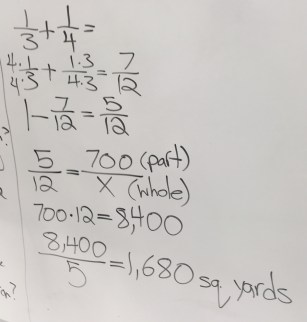 1/3 + 1/4 =
4·1/4·3 + 1·3/4·3 = 7/12
1 - 7/12 = 5/12
5/12 = 700 (part)/X (whole)
700·12 = 8,400
8,400/5 = 1,680 sq yards